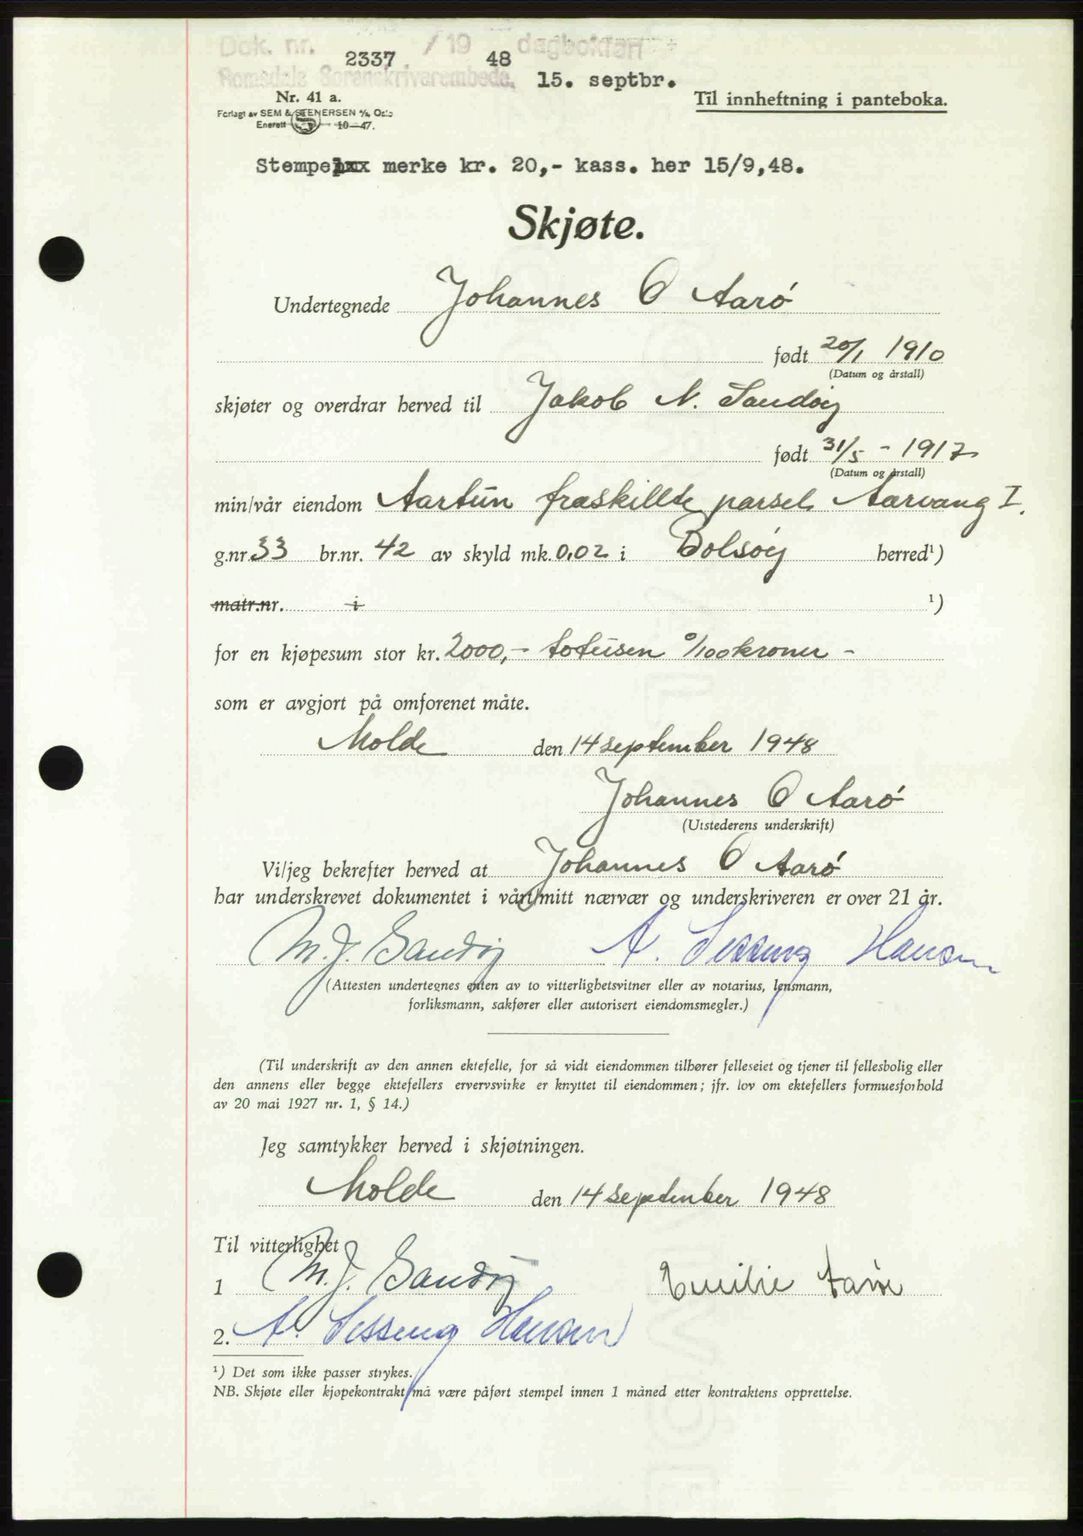 Dok. nr. 2337 / 19 48 dagbokført
Romsdals Sorenskriverembede. 15. septbr.
Nr. 41 a.
Forlagt av SEM & STENERSEN A/s, Oslo
Enerett 10—47.
Til innheftning i panteboka.
Stempelxx merke kr. 20,- kass. her 15/9,48.
Skjøte.
Undertegnede Johannes O Aarö
født 20/1 1910
(Datum og årstall)
skjøter og overdrar herved til Jakob N. Sandöy
født 31/5 - 1917
(Datum og årstall)
min/vår eiendom Aartün fraskillte parsel Aarvang I.
g.nr. 33 br.nr. 42 av skyld mk. 0,02 i Bolsöy herred¹)
matr.nr. i ¹)
for en kjøpesum stor kr. 2000,- totüsen 0/100 kroner -
som er avgjort på omforenet måte.
Molde den 14 september 1948
Johannes O Aarö
(Utstederens underskrift)
Vi/jeg bekrefter herved at Johannes O Aarö
har underskrevet dokumentet i vårt/mitt nærvær og underskriveren er over 21 år.
M. J. Sandöy A. Sesseng Hansen
(Attesten undertegnes enten av to vitterlighetsvitner eller av notarius, lensmann,
forliksmann, sakfører eller autorisert eiendomsmegler.)
(Til underskrift av den annen ektefelle, for så vidt eiendommen tilhører felleseiet og tjener til fellesbolig eller
den annens eller begge ektefellers ervervsvirke er knyttet til eiendommen; jfr. lov om ektefellers formuesforhold
av 20 mai 1927 nr. 1, § 14.)
Jeg samtykker herved i skjøtningen.
Molde den 14 september 1948
Til vitterlighet
1 M. J. Sandöy Emilie Aarö
2. A. Sesseng Hansen
¹) Det som ikke passer strykes.
NB. Skjøte eller kjøpekontrakt må være påført stempel innen 1 måned etter kontraktens opprettelse.